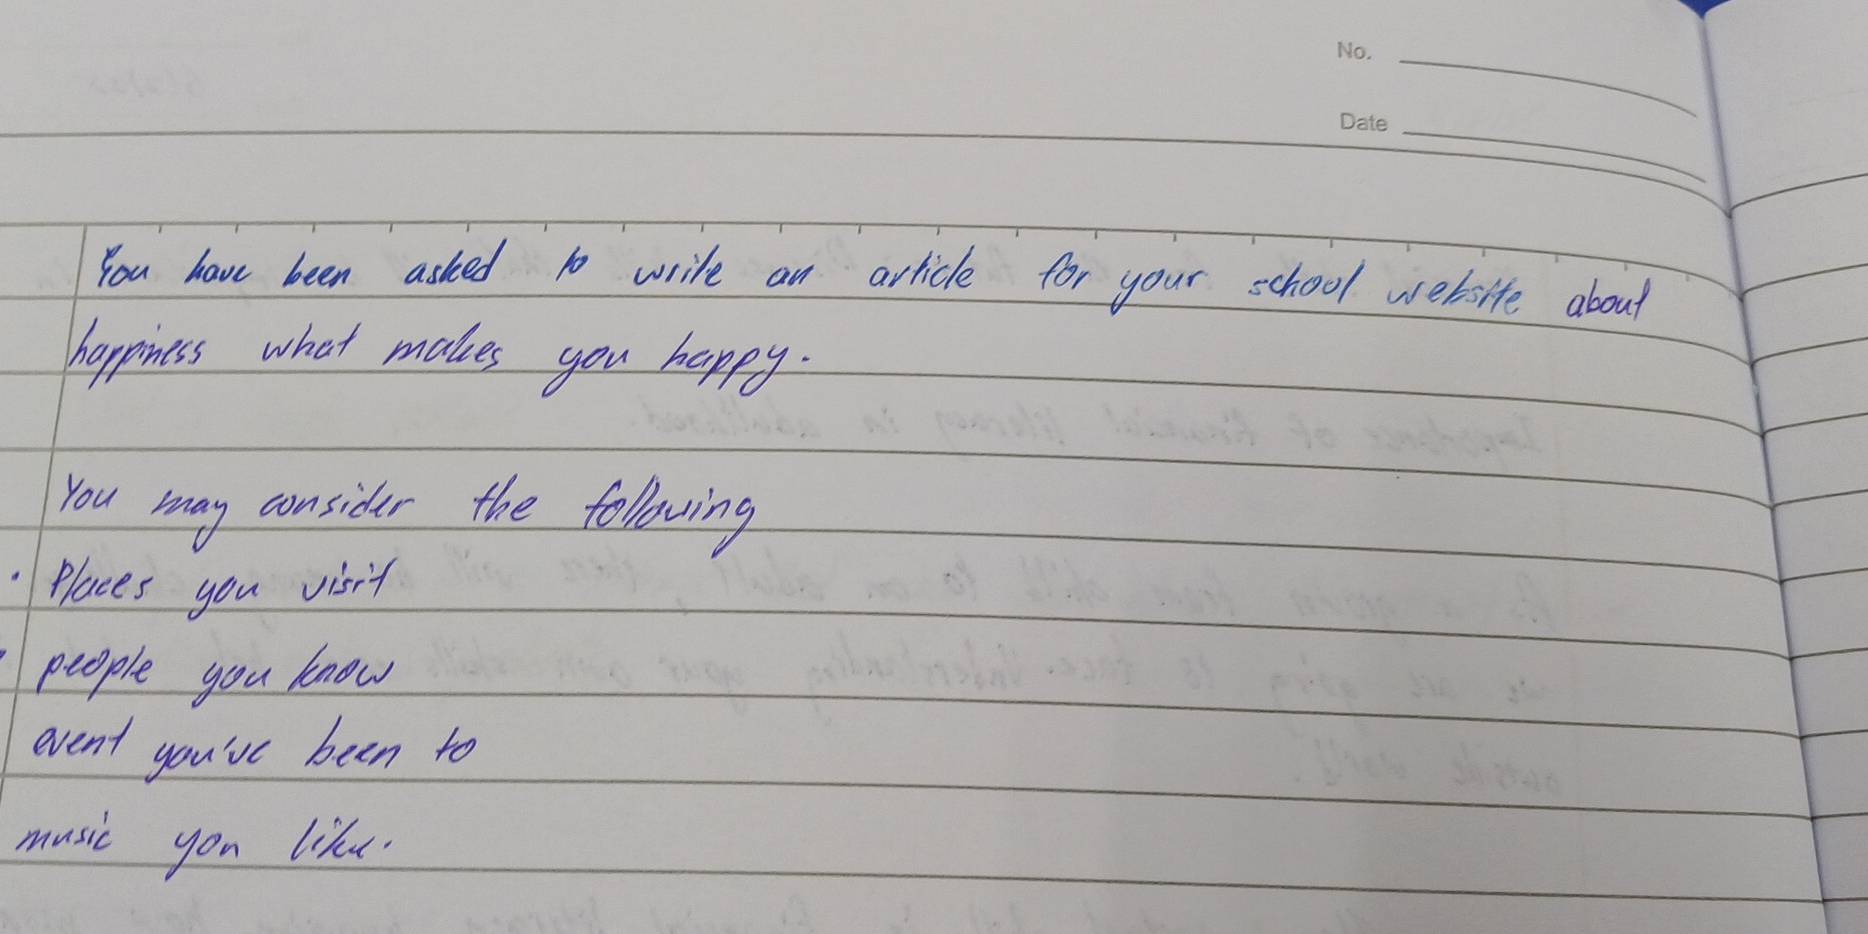 No.
Date
You have been asked to write an article for your school website about
happiness what makes you happy.
You may consider the following
• Places you visit
• people you know
event you've been to
music you like.